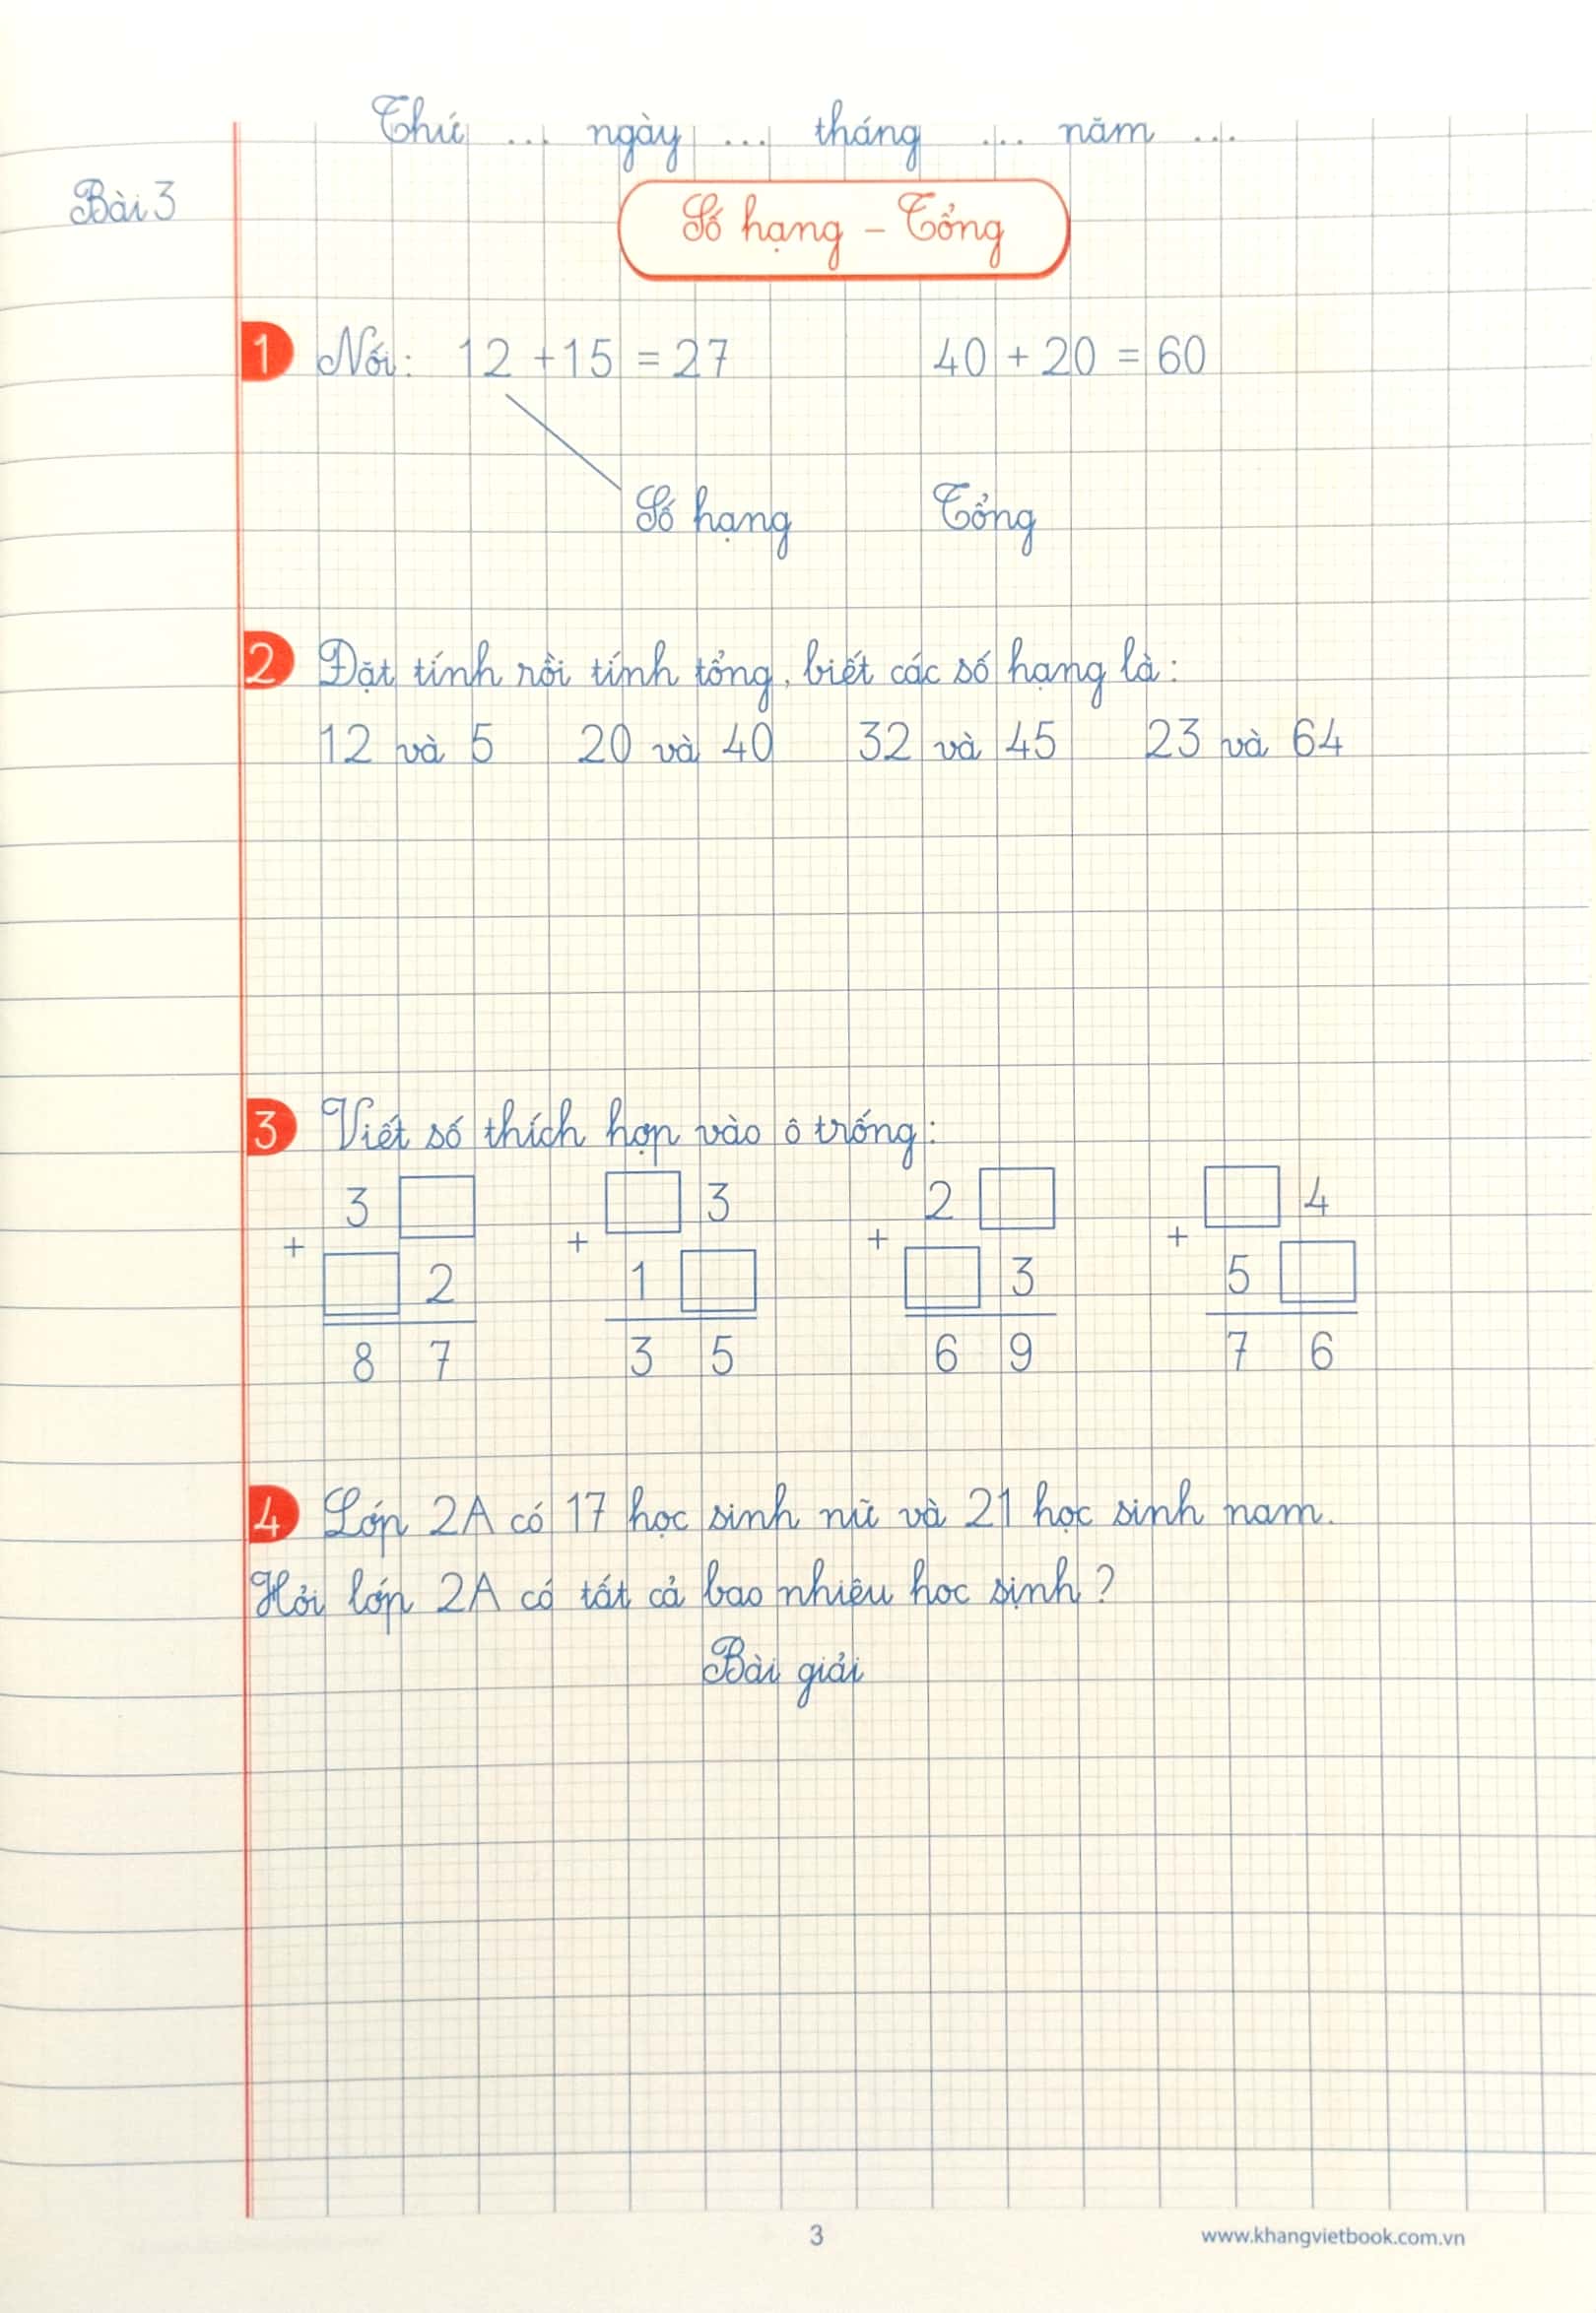 Thứ ... ngày ... tháng ... năm ...
Bài 3
Số hạng - Tổng
1 Nối: 12 + 15 = 27 40 + 20 = 60
Số hạng Tổng
2 Đặt tính rồi tính tổng, biết các số hạng là:
12 và 5 20 và 40 32 và 45 23 và 64
3 Viết số thích hợp vào ô trống:
3 3 2 4
+ + + +
2 1 3 5
8 7 3 5 6 9 7 6
4 Lớp 2A có 17 học sinh nữ và 21 học sinh nam.
Hỏi lớp 2A có tất cả bao nhiêu học sinh?
Bài giải
3
www.khangvietbook.com.vn